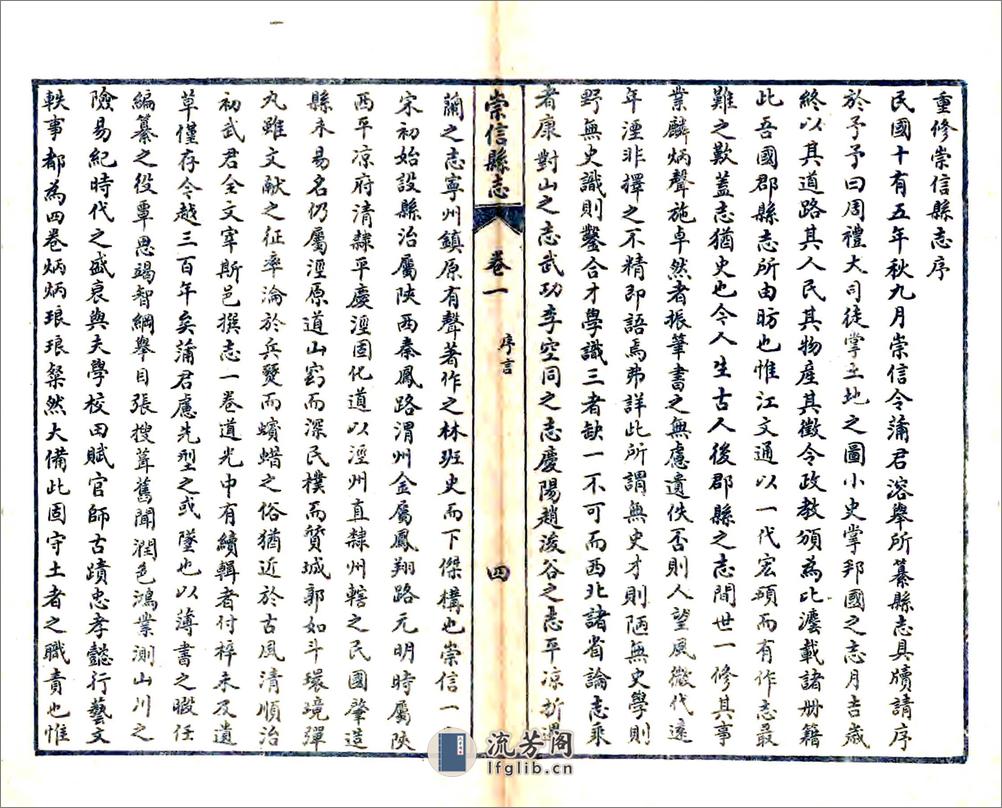 重修崇信縣志序
民國十有五年秋九月崇信令蒲君溶舉所纂縣志具牘請序
於予予曰周禮大司徒掌土地之圖小史掌邦國之志月吉歲
終以其道路其人民其物產其徵令政教頒為比灋載諸册籍
此吾國郡縣志所由昉也惟江文通以一代宏碩而有作志最
難之歎蓋志猶史也今人生古人後郡縣之志間世一修其事
業麟炳聲施卓然者振筆書之無慮遺佚否則人望風微代遠
年湮非擇之不精即語焉弗詳此所謂無史才則陋無史學則
野無史識則鑿合才學識三者缺一不可而西北諸省論志乘
者康對山之志武功李空同之志慶陽趙浚谷之志平凉折遇
崇信縣志
卷一
序言
四
蘭之志寧州鎮原有聲著作之林班史而下傑構也崇信一
宋初始設縣治屬陝西秦鳳路渭州金屬鳳翔路元明時屬陝
西平凉府清隸平慶涇固化道以涇州直隸州轄之民國肇造
縣未易名仍屬涇原道山窈而深民樸而質城郭如斗環境彈
丸雖文献之征率淪於兵燹而蠙蜡之俗猶近於古風清順治
初武君全文宰斯邑撰志一卷道光中有續輯者付梓未及遺
草僅存今越三百年矣蒲君慮先型之或墜也以薄書之暇任
編纂之役覃思竭智綱舉目張搜葺舊聞潤色鴻業測山川之
險易紀時代之盛衰與夫學校田賦官師古蹟忠孝懿行藝文
軼事都為四卷炳炳琅琅粲然大備此固守土者之職責也惟
流芳阁
lfglib.cn